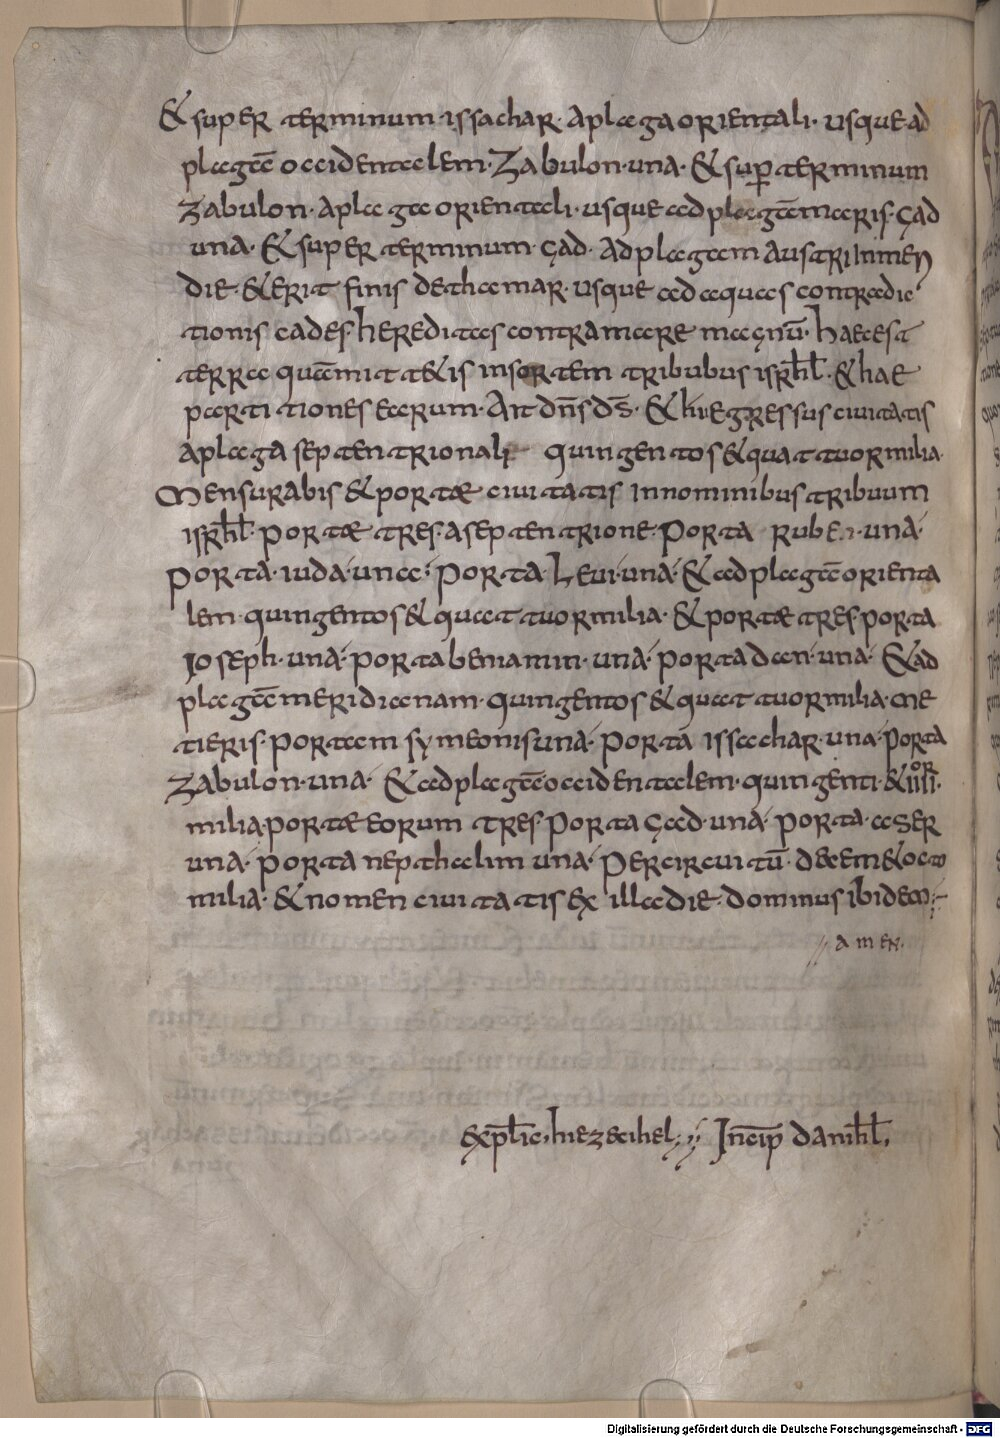 & super terminum · issachar · a plaga orientali · usque ad
plagā occidentalem · Zabulon · una · & suꝑ terminum
zabulon · a plaga orientali · usque ad plagā maris · Gad
una · & super terminum · Gad · ad plagam austri in meri
die · & erit finis de thamar · usque ad aquas contradic
tionis cades hereditas contra mare magnū · Haec est
terra quā mittetis in sortem tribubus isrl̄ · & hae
partitiones earum · Ait dn̄s ds̄ · & hi egressus civitatis
a plaga septentrionali quingentos & quattuor milia ·
Mensurabis & portæ civitatis in nominibus tribuum
isrl̄ · portæ tres · a septentrione · Porta ruben · una ·
porta · iuda · una · porta · Levi · una · & ad plagā orienta
lem · quingentos & quattuor milia · & portæ tres porta
ioseph · una · porta beniamin · una · porta dan · una · & ad
plagā meridianam · quingentos & quattuor milia · me
tieris · portam symeonis una · porta issachar · una · porta
zabulon · una · & ad plagā occidentalem · quingenti · & iiiior ·
milia · portæ eorum tres porta Gad · una · porta · aser
una · porta nepthalim una · Per circuitū · decem & octo
milia · & nomen civitatis ex illa die · dominus ibidem ·
amen ·
Explic · hiezecihel · Incip danihl ·
Digitalisierung gefördert durch die Deutsche Forschungsgemeinschaft - DFG